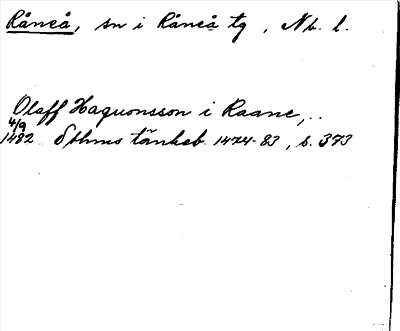 Råneå, sn i Råneå tg, Nb. l.
Olaff Haquonsson i Raane,..
4/9
1482 Sthms tänkeb. 1474-83, s. 373